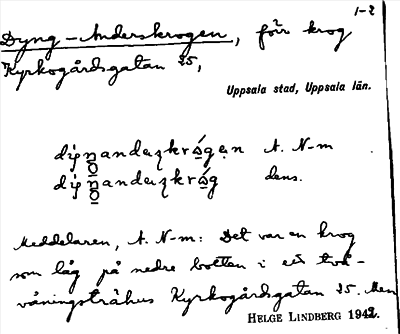 1-2
Dyng-Anderskrogen, förr krog
Kyrkogårdsgatan 25,
Uppsala stad, Uppsala län.
A. N-m
dens.
Meddelaren, A. N-m: Det var en krog
som låg på nedre botten i ett två-
våningsträhus Kyrkogårdsgatan 25. Men
HELGE LINDBERG 1942.